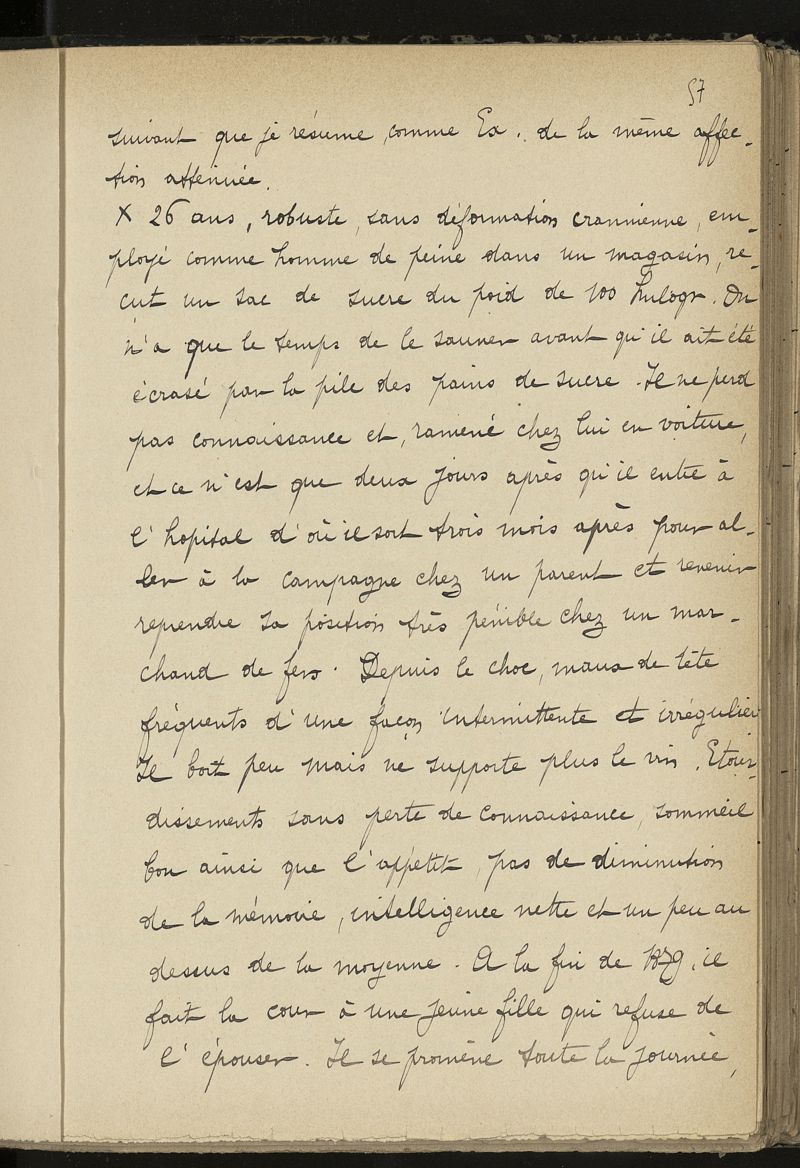 57
suivant que je résume, comme Ex. de la même affec-
tion atténuée.
X 26 ans, robuste, sans déformation crannienne, em-
ployé comme homme de peine dans un magasin, re-
çut un sac de sucre du poid de 100 kulogr. On
n'a que le temps de le sauver avant qu'il ait été
écrasé par la pile des pains de sucre. Il ne perd
pas connaissance et, ramené chez lui en voiture,
et ce n'est que deux jours après qu'il entre à
l'hopital d'où il sort trois mois après pour al-
ler à la campagne chez un parent et revenir
reprendre sa position très pénible chez un mar-
chand de fers. Depuis le choc, maux de tête
fréquents d'une façon intermittente et irrégulier
Il boit peu mais ne supporte plus le vin. Etour-
dissements sans perte de connaissance, sommeil
bon ainsi que l'appétit, pas de diminution
de la mémoire, intelligence nette et un peu au
dessus de la moyenne. A la fin de 1879, il
fait la cour à une jeune fille qui refuse de
l'épouser. Il se promène toute la journée,